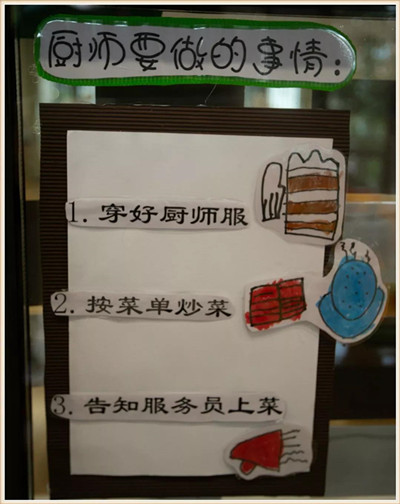 厨师要做的事情:
1. 穿好厨师服
2. 按菜单炒菜
3. 告知服务员上菜